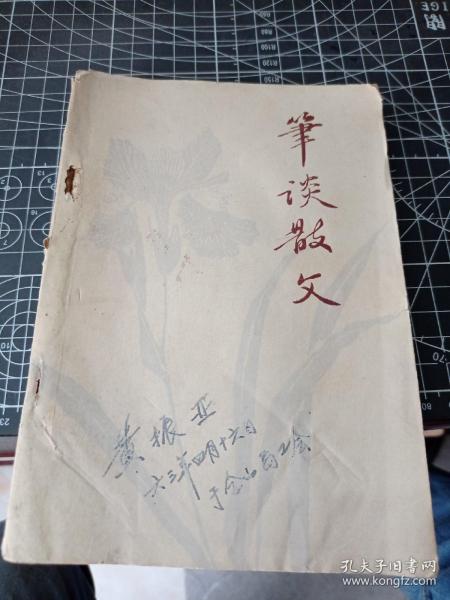 筆谈散文
黄振亚
六三年四月十六日
孔夫子旧书网
www.kongfz.com